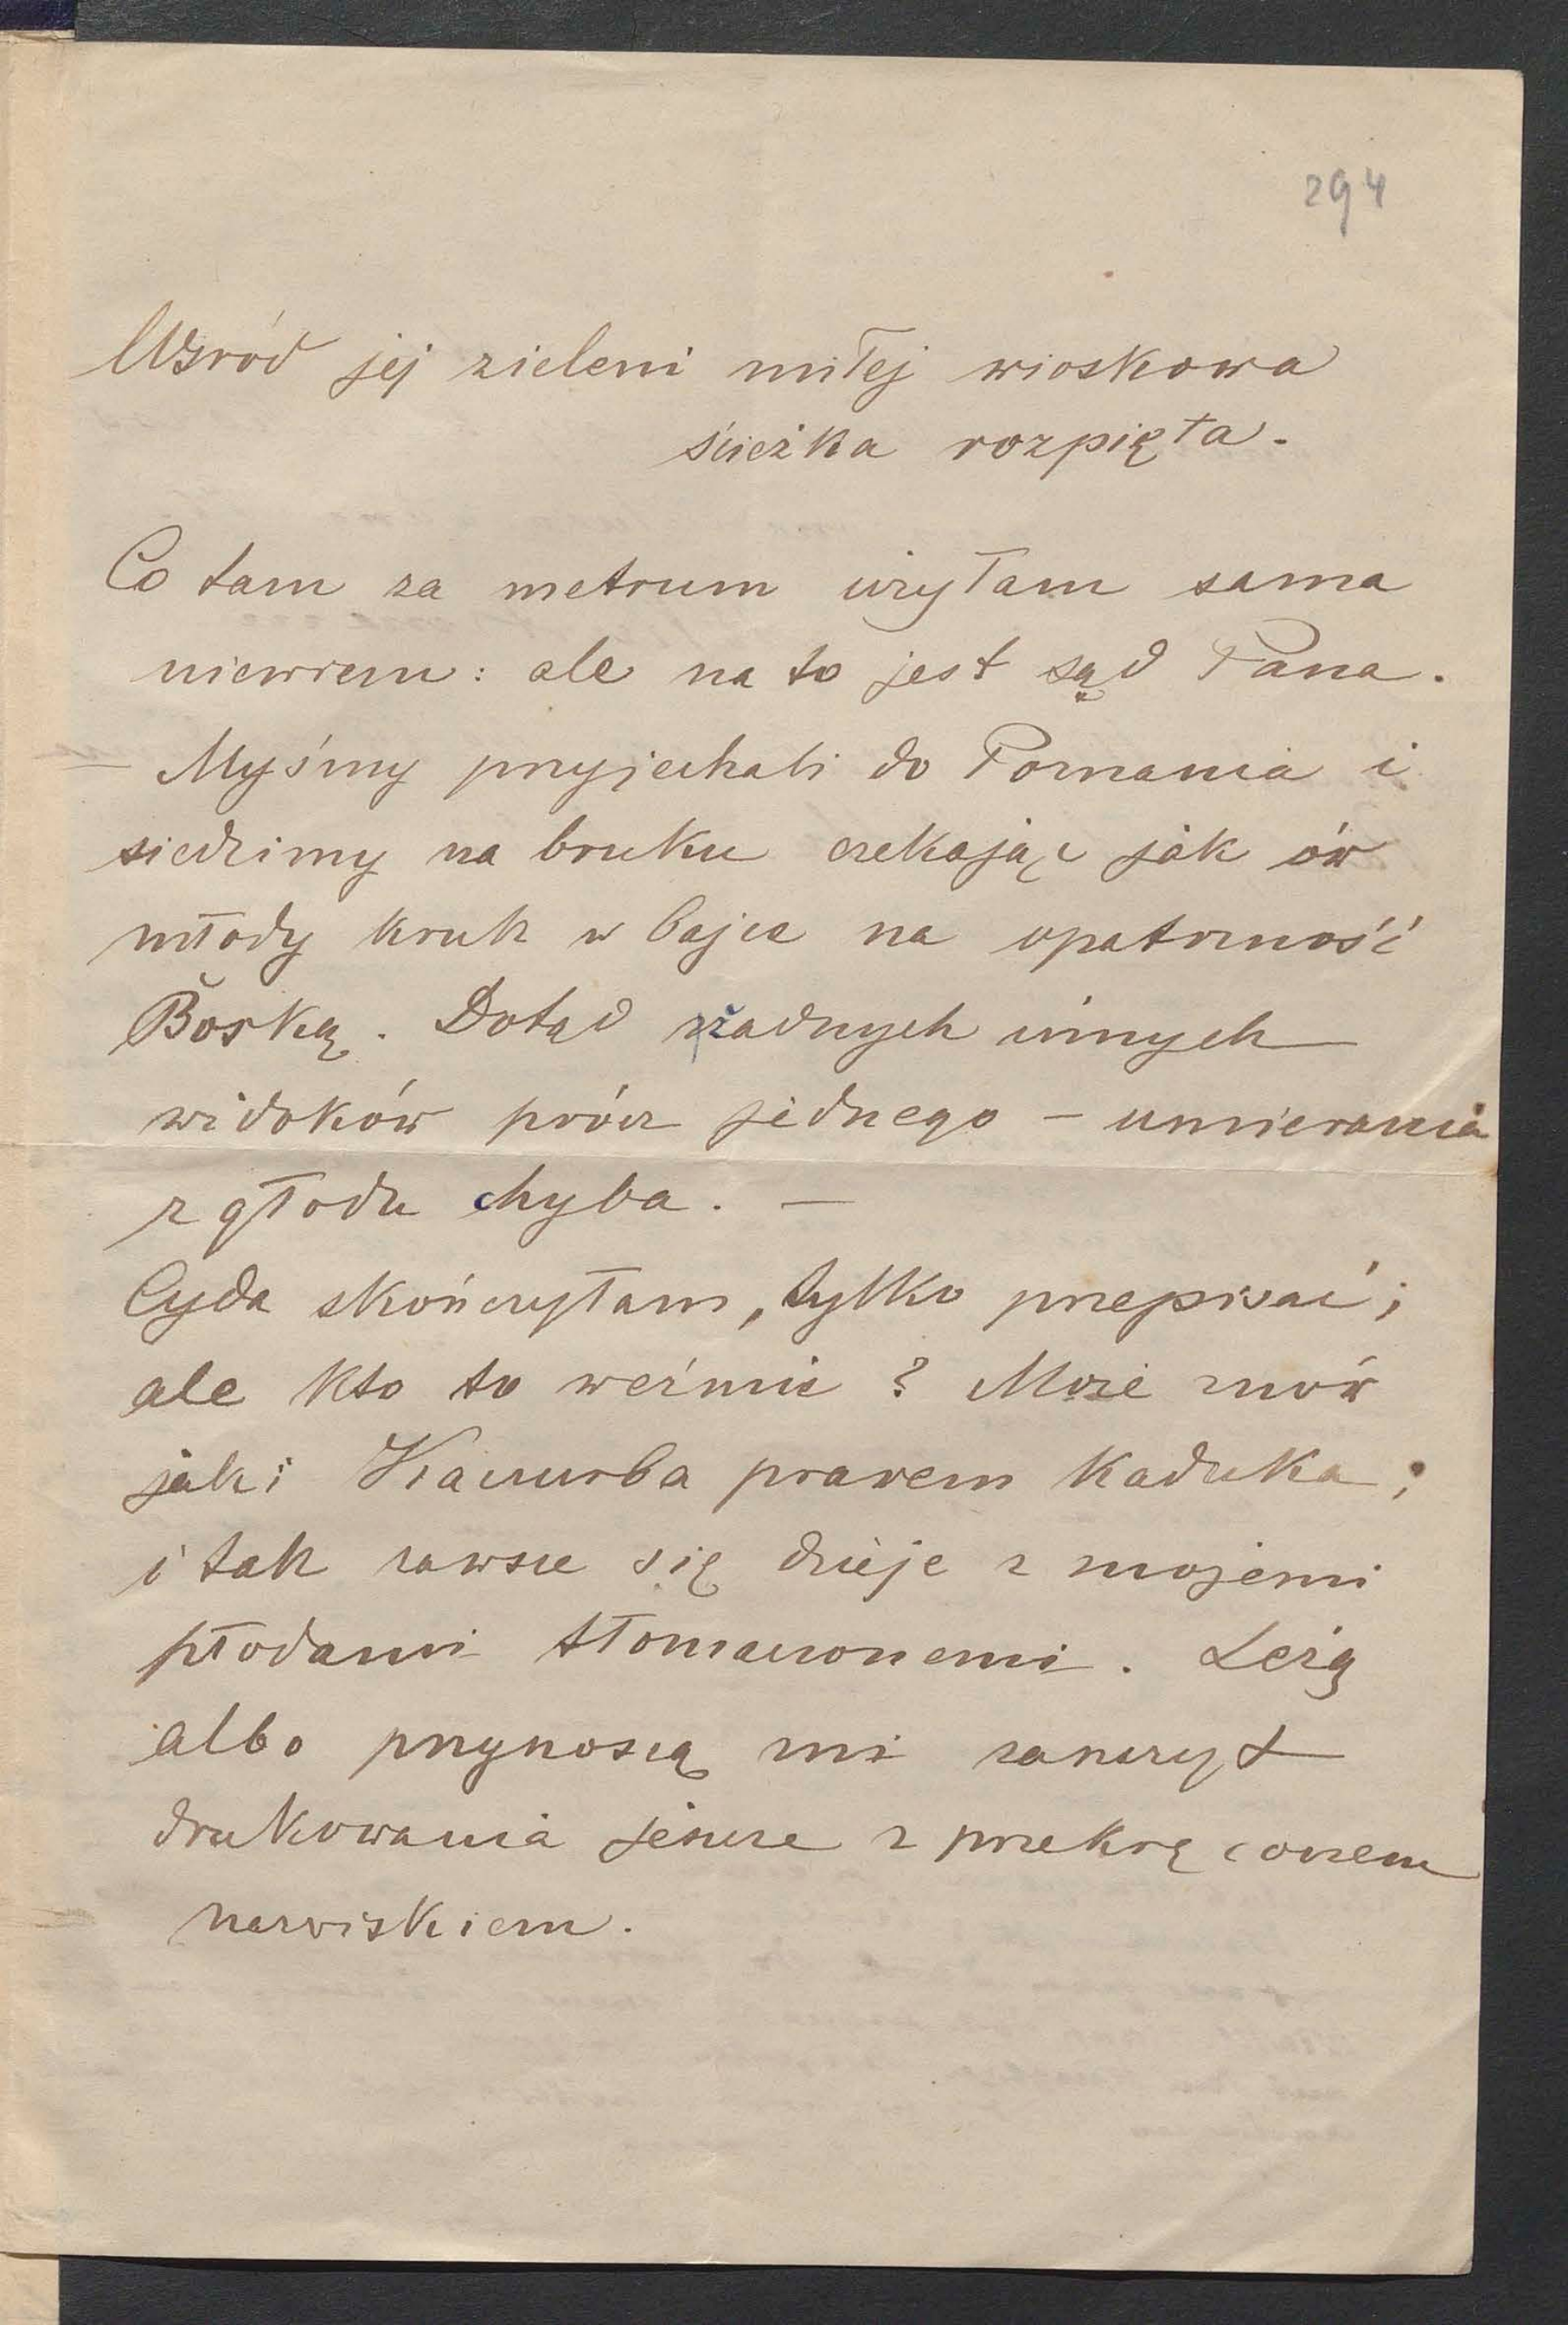 294
Wśród jej zieleni miłej wioskowa
ścieżka rozpięta.
Co tam za metrum użyłam sama
niewiem: ale na to jest sąd Pana.
— Myśmy przyjechali do Poznania i
siedzimy na bruku czekając jak ów
młody kruk w bajce na opatrzność
Boską. Dotąd żadnych innych
widoków prócz jednego – umierania
z głodu chyba. —
Cyda skończyłam, tylko przepisać;
ale kto to weźmie? Może znów
jaki Kaczurba prawem kaduka;
i tak zawsze się dzieje z mojemi
płodami tłomaczonemi. Leżą
albo przynoszą mi zaszczyt
drukowania jeszcze z przekręconem
nazwiskiem.